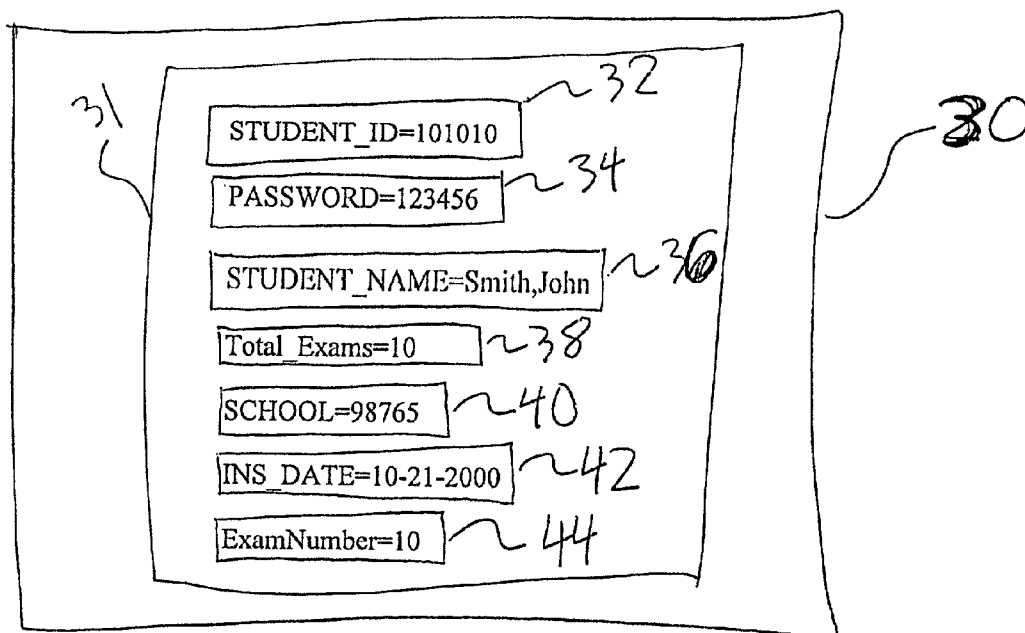 32
STUDENT_ID=101010
31
30
34
PASSWORD=123456
36
STUDENT_NAME=Smith,John
Total_Exams=10 38
SCHOOL=98765 40
INS_DATE=10-21-2000 42
ExamNumber=10 44